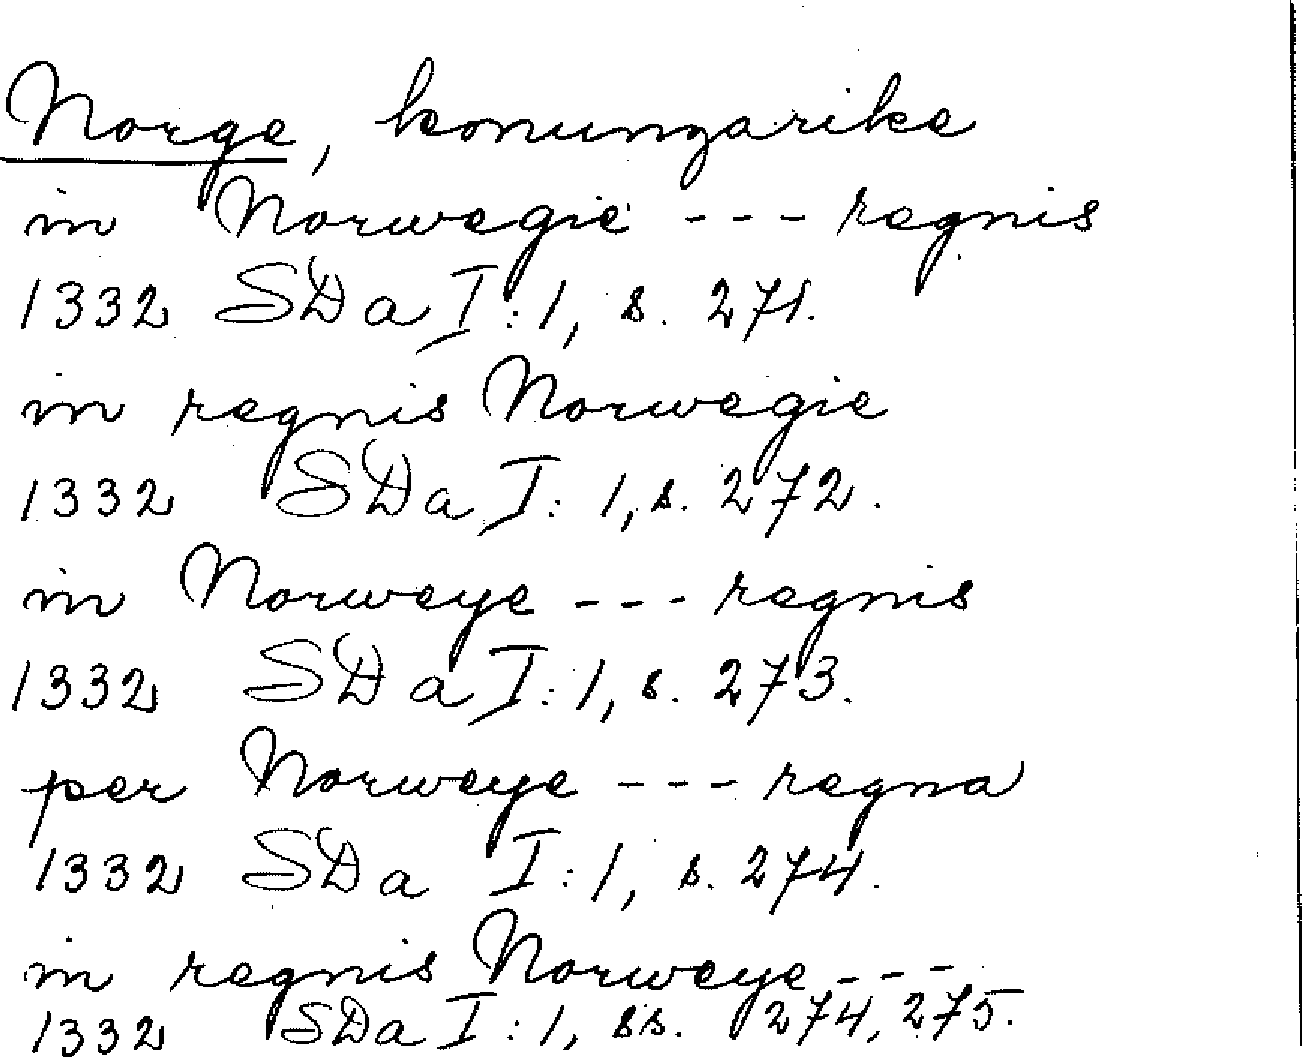 Norge, konungarike
in Norwegie --- regnis
1332 SDa I:1, s. 271.
in regnis Norwegie
1332 SDa I: 1, s. 272.
in Norweye --- regnis
1332 SDa I: 1, s. 273.
per Norweye --- regna
1332 SDa I:1, s. 274.
in regnis Norweye ---
1332 SDa I:1, ss. 274, 275.